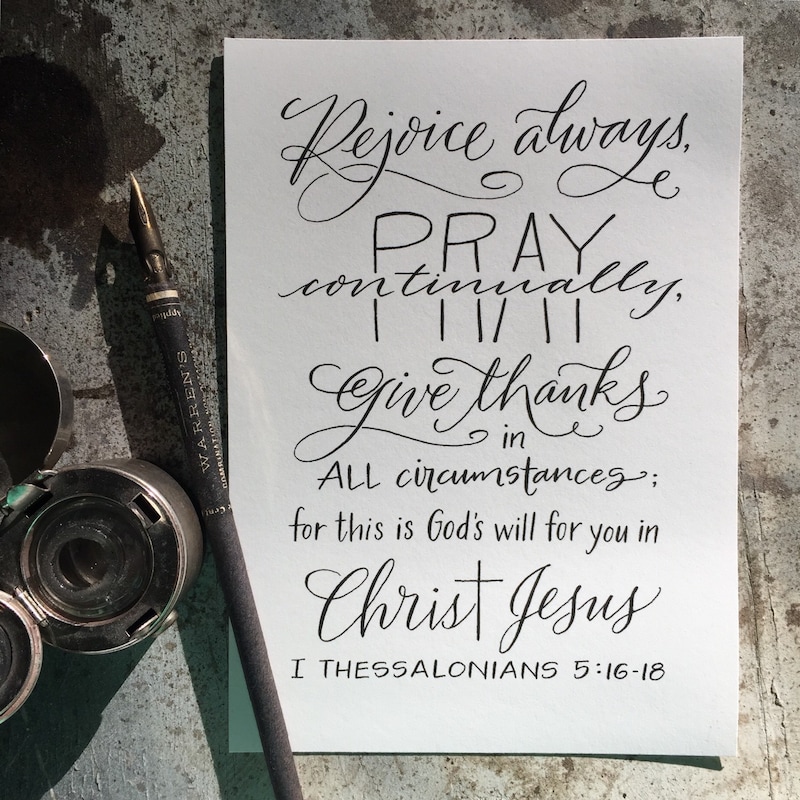 Rejoice always,
PRAY
continually,
Give thanks
in
ALL circumstances;
for this is God's will for you in
Christ Jesus
I THESSALONIANS 5:16-18
WARREN'S
Applied